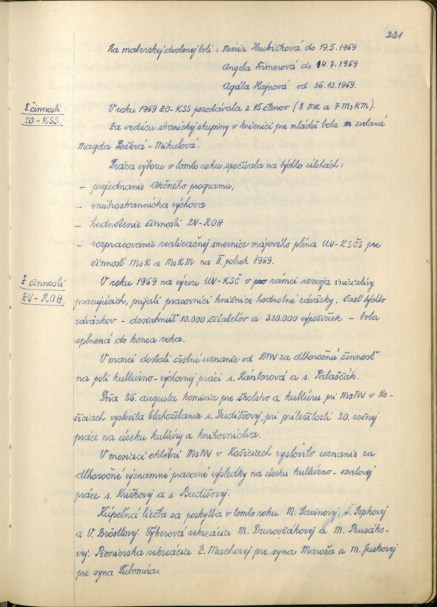 221
Na materskej dovolenej boli : Mária Hudičková do 19.5.1969
Angela Frimerová do 14.7.1969
Agáta Hajnová od 26.10.1969.
Z činnosti
ZO-KSS.
V roku 1969 ZO-KSS pozostávala z 15 členov (8 MK a 7 MsKM).
Za vedúcu straníckej skupiny v knižnici pre mládež bola zvolená
Magda Mihulová.
Práca výboru v tomto roku spočívala na týchto úlohách:
- prejednanie akčného programu,
- vnútrostranícka výchova
- hodnotenie činnosti ZV-ROH
- rozpracovanie realizačnej smernice májového pléna ÚV-KSČS pre
činnosť MsK a MsKM na II. polrok 1969.
Z činnosti
ZV-ROH.
V roku 1969 na výzvu ÚV-KSČ v rámci rozvoja iniciatívy
pracujúcich, prijali pracovníci knižnice hodnotné záväzky. Časť týchto
záväzkov - dosiahnuť 13.000 čitateľov a 320.000 výpožičiek - bola
splnená do konca roka.
V marci dostali čestné uznanie od za dlhoročnú činnosť
na poli kultúrno-výchovnej práci s. Kántorová a s. Palaščák.
Dňa 26. augusta komisia pre školstvo a kultúru pri MsNV v Ko-
šiciach vyslovila blahoželanie s. pri príležitosti 20. ročnej
práce na úseku kultúry a knihovníctva.
V mesiaci október MsNV v Košiciach vyslovilo uznanie za
dlhoročné významné pracovné výsledky na úseku kultúrno-osvetovej
práce s. a s.
Kúpeľná liečba sa poskytla v tomto roku M. Savinovej, Sepkovej
a V. Dröstlovej. Výberová rekreácia M. a M.
Pionierska rekreácia E. Machovej pre syna Maroša a M. Juskovej
pre syna Ľubomíra.